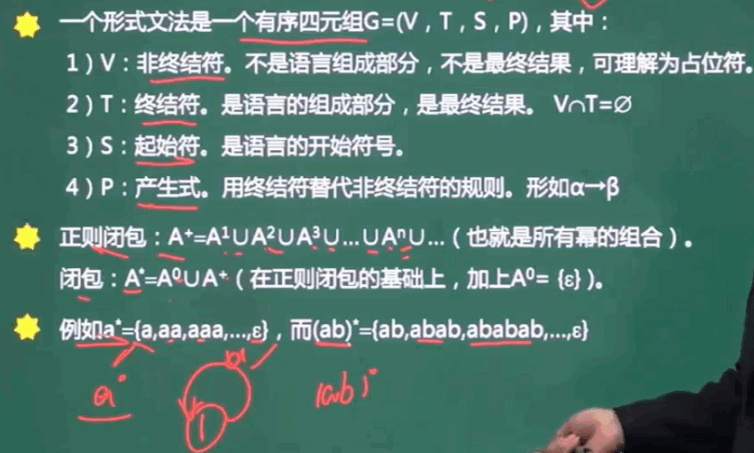 一个形式文法是一个有序四元组G=(V，T，S，P)，其中：
1）V：非终结符。不是语言组成部分，不是最终结果，可理解为占位符。
2）T：终结符。是语言的组成部分，是最终结果。 V∩T=∅
3）S：起始符。是语言的开始符号。
4）P：产生式。用终结符替代非终结符的规则。形如α→β
正则闭包：A⁺=A¹∪A²∪A³∪...∪Aⁿ∪...（也就是所有幂的组合）。
闭包：A*=A⁰∪A⁺（在正则闭包的基础上，加上A⁰={ε}）。
例如a*={a,aa,aaa,...,ε}，而(ab)*={ab,abab,ababab,...,ε}
a*
a
1
(ab)*